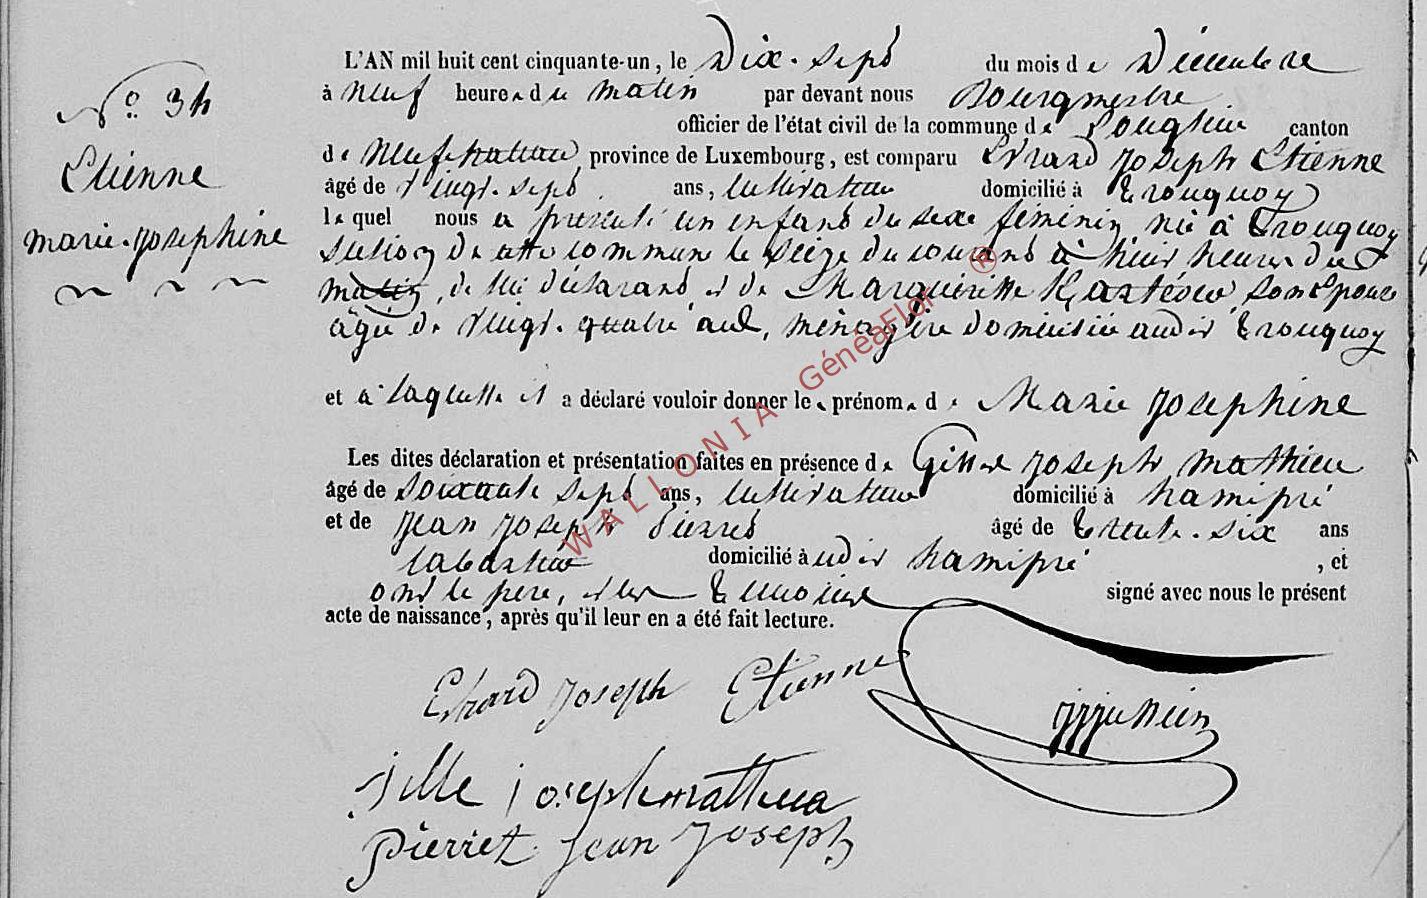 N.° 34
Etienne
marie-Josephine
L'AN mil huit cent cinquante-un, le Dix-sept du mois de Décembre
à Neuf heures du matin par devant nous Bourgmestre
officier de l'état civil de la commune de Longlier canton
de Neufchateau province de Luxembourg, est comparu Erard Joseph Etienne
âgé de vingt-sept ans, cultivateur domicilié à Tronquoy
lequel nous a presenté un enfant du sexe féminin né à Tronquoy
section de cette commune le seize du courant à huit heures du
matin, de lui déclarant, et de Marguerite son Epouse
âgée de vingt-quatre ans, ménagère domiciliée audit Tronquoy
et à laquelle il a déclaré vouloir donner les prénoms de Marie Josephine
Les dites déclaration et présentation faites en présence de Gille Joseph Mathieu
âgé de soixante sept ans, cultivateur domicilié à hamipré
et de Jean Joseph Pierret âgé de Trente-six ans
laboureur domicilié à udit hamipré, et
ont le père, et les Temoins signé avec nous le présent
acte de naissance, après qu'il leur en a été fait lecture.
Erard Joseph Etienne
jille joseph mathieu
pierret jean Joseph
WALLONIA GénéaFlor ®